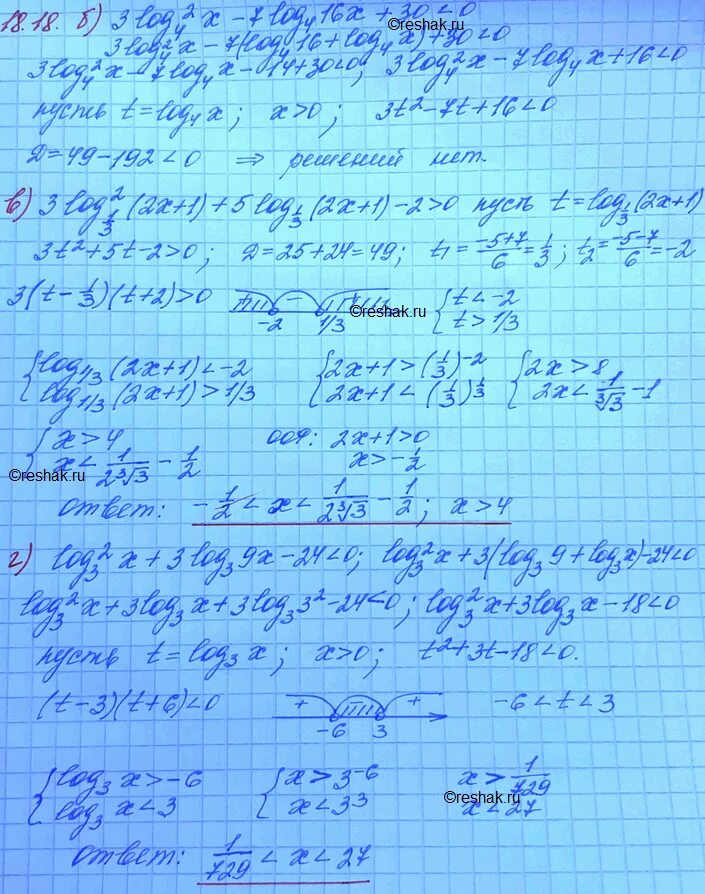 18.18. б) 3log₄²x − 7log₄16x + 30 < 0
©reshak.ru
3log₄²x − 7(log₄16 + log₄x) + 30 < 0
3log₄²x − 7log₄x − 14 + 30 < 0; 3log₄²x − 7log₄x + 16 < 0
пусть t = log₄x; x > 0; 3t² − 7t + 16 < 0
Д = 49 − 192 < 0 ⇒ решений нет.
в) 3log²_{1/3}(2x+1) + 5log_{1/3}(2x+1) − 2 > 0 пусть t = log_{1/3}(2x+1)
3t² + 5t − 2 > 0; Д = 25 + 24 = 49; t₁ = (−5+7)/6 = 1/3; t₂ = (−5−7)/6 = −2
3(t − 1/3)(t + 2) > 0 + − + −2 1/3 { t < −2
t > 1/3
©reshak.ru
{ log_{1/3}(2x+1) < −2 { 2x+1 > (1/3)^{−2} { 2x > 8
log_{1/3}(2x+1) > 1/3 2x+1 < (1/3)^{1/3} 2x < 1/∛3 − 1
{ x > 4 ООФ: 2x+1 > 0
x < 1/(2∛3) − 1/2 x > −1/2
©reshak.ru
ответ: −1/2 < x < 1/(2∛3) − 1/2; x > 4
г) log₃²x + 3log₃9x − 24 < 0; log₃²x + 3(log₃9 + log₃x) − 24 < 0
log₃²x + 3log₃x + 3log₃3² − 24 < 0; log₃²x + 3log₃x − 18 < 0
пусть t = log₃x; x > 0; t² + 3t − 18 < 0.
(t − 3)(t + 6) < 0 + − + −6 3 −6 < t < 3
{ log₃x > −6 { x > 3^{−6} x > 1/729
log₃x < 3 x < 3³ x < 27
©reshak.ru
ответ: 1/729 < x < 27